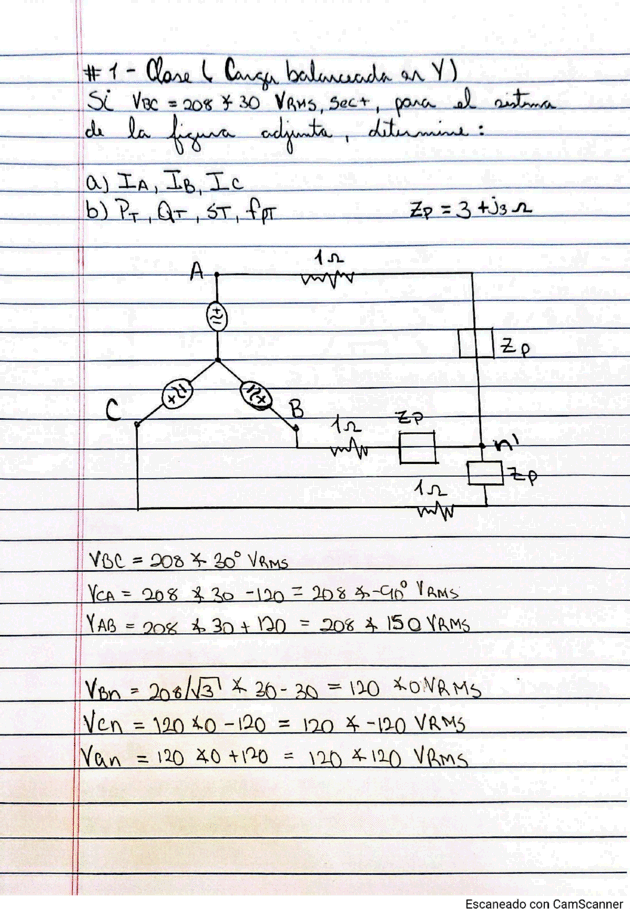 #1 - Clase ( Carga balanceada en Y)
Si VBC = 208 ∡ 30 VRMS, sec+, para el sistema
de la figura adjunta, determine:
a) IA, IB, IC
b) PT, QT, ST, fpT
Zp = 3 + j3 Ω
1Ω
A
Zp
C
B
1Ω
Zp
n'
Zp
1Ω
VBC = 208 ∡ 30° VRMS
VCA = 208 ∡ 30 - 120 = 208 ∡ -90° VRMS
VAB = 208 ∡ 30 + 120 = 208 ∡ 150 VRMS
VBn = 208/√3 ∡ 30 - 30 = 120 ∡0 VRMS
Vcn = 120 ∡0 - 120 = 120 ∡ -120 VRMS
Van = 120 ∡0 + 120 = 120 ∡ 120 VRMS
Escaneado con CamScanner